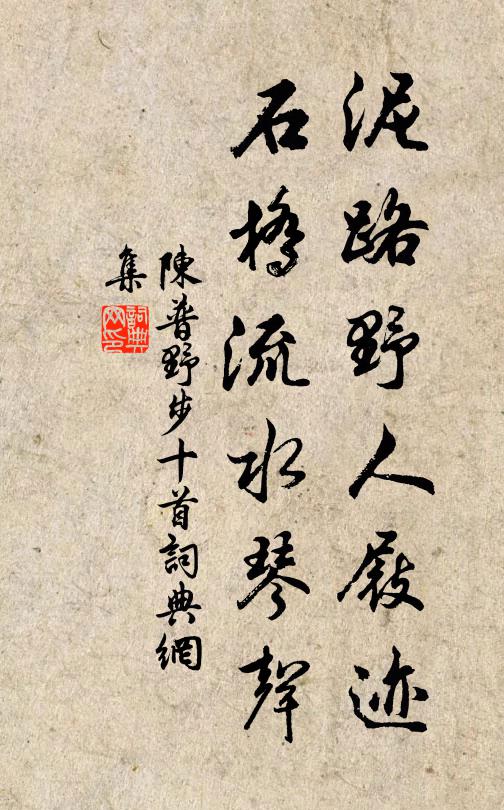 泥路野人屐迹
石橋流水琴聲
陳普野步十首詞典網
集
詞典网印